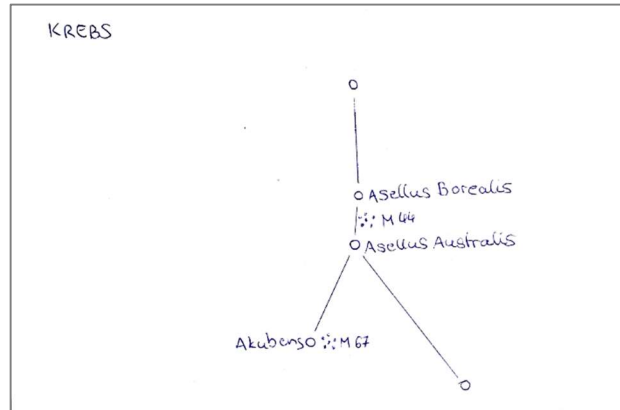 KREBS
Asellus Borealis
M 44
Asellus Australis
Akubens
M 67